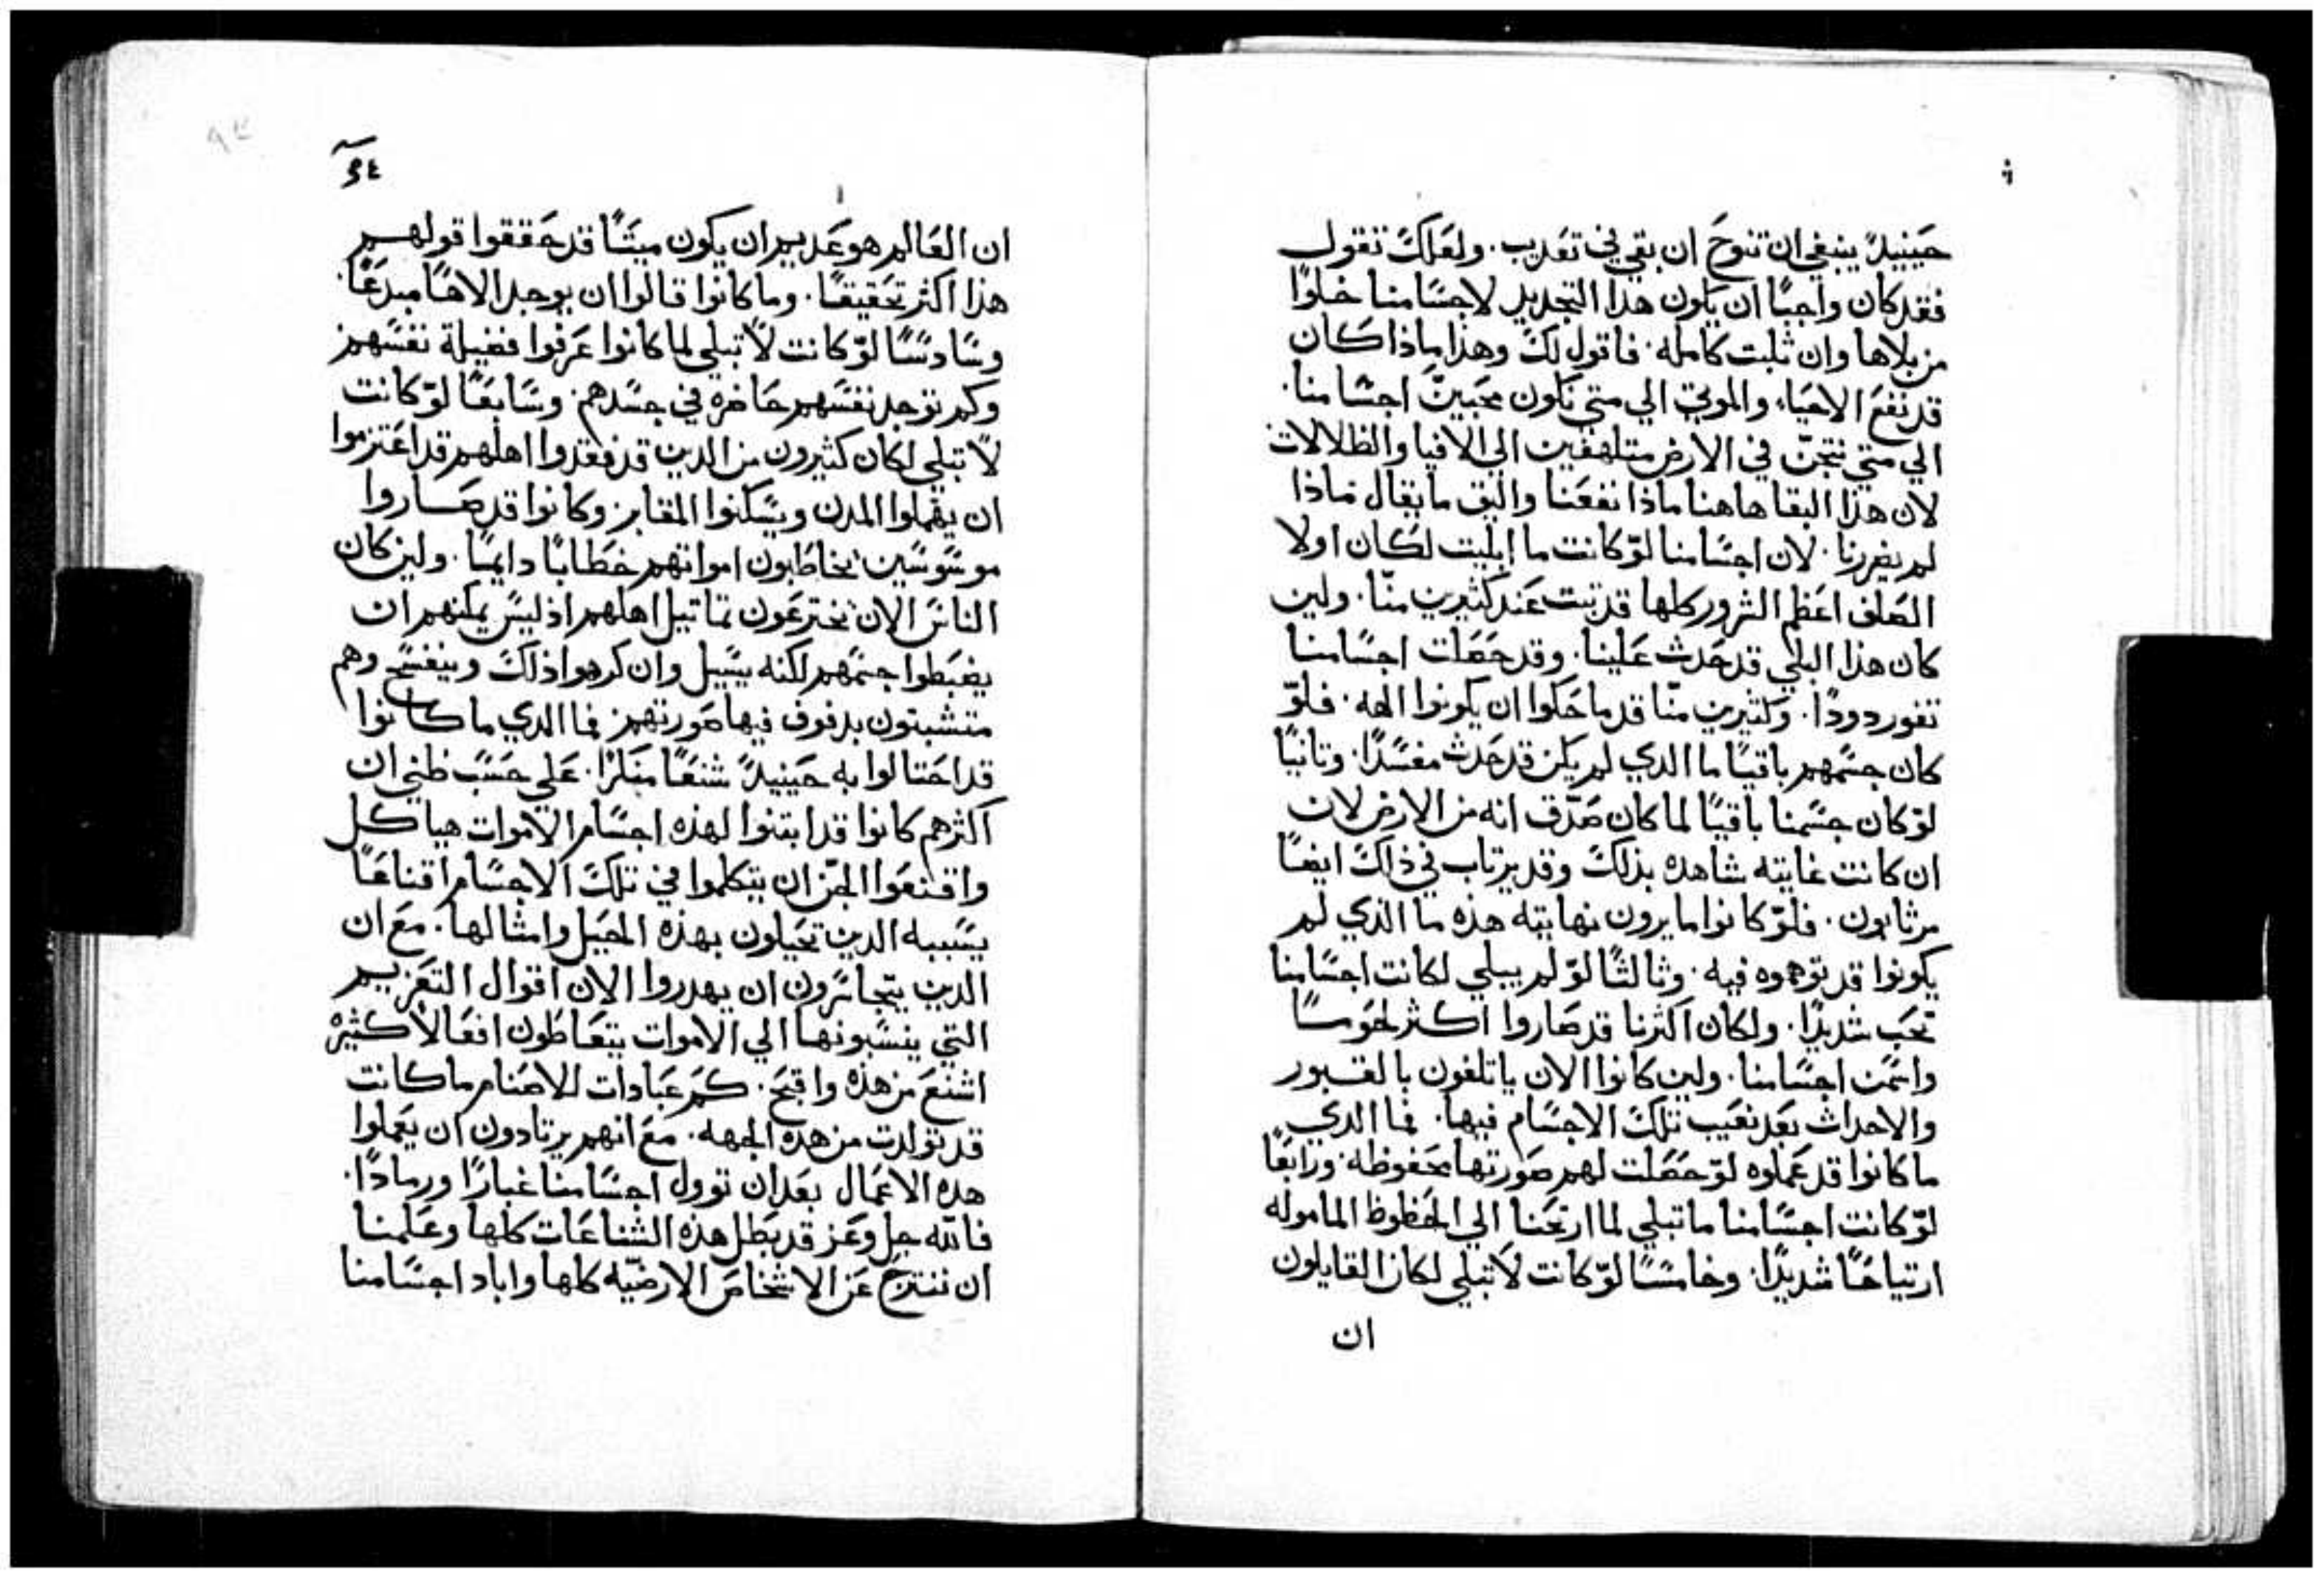 حينيذ ينبغي ان تنوح ان بقي في تعذيب. ولعلك تقول
فقد كان واجبًا ان يكون هذا التجديد لاجسامنا خلوًا
من بلاها وان ثلبت كامله. فاقول لك وهذا ماذا كان
قد نفع الاحياء والموتي الي متي نكون محبين اجسامنا.
الي متي في الارض متلهفين الي الافيا والظلالات
لان هذا البقا هاهنا ماذا نفعنا واليق ما يقال ماذا
لم يضررنا. لان اجسامنا لو كانت ما ابليت لكان اولا
الصلف اعظم الشرور كلها قد ثبت عند كثيرين منّا. ولين
كان هذا البلي قد حدث علينا. وقد حصلت اجسامنا
تفور دودًا. وكثيرين منّا قد ماحكوا ان يكونوا الهه. فلوّ
كان جسمهم باقيًا ما الدي لم يكن قد حدث مفسدًا. وتانيًا
لوّ كان جسمنا باقيًا لما كان صدّق انه من الارض لان
ان كانت غايته شاهده بذلك وقد يرتاب في ذلك ايضًا
مرتابون. فلوّ كانوا ما يرون نهايته هذه ما الذي لم
يكونوا قد توهموه فيه. وثالثًا لوّ لم يبلي لكانت اجسامنا
تحب شديدًا. ولكان اكثرنا قد صاروا اكثر لحوسًا
واسمن اجسامنا. ولين كانوا الان ياتلفون بالقبور
والاحداث بعد تغيب تلك الاجسام فيها. فما الدي
ما كانوا قد عملوه لوّ حصلت لهم صورتها محفوظه. ورابعًا
لوّ كانت اجسامنا ما تبلي لما ارتحنا الي الحظوظ الماموله
ارتياحًا شديدًا. وخامسًا لوّ كانت لا تبلي لكان القايلون
ان
ان العالم هو عديم ان يكون ميتًا قد حققوا قولهم
هذا اكثر تحقيقًا. وما كانوا قالوا ان يوجد الاهًا مبدعًا.
وسادسًا لوّ كانت لا تبلي لما كانوا عرفوا فضيلة نفسهم
وكم توجد نفسهم حاضره في جسدهم. وسابعًا لوّ كانت
لا تبلي لكان كثيرون من الدين قد فقدوا اهلهم قد اعتزموا
ان يهملوا المدن ويسكنوا المقابر وكانوا قد صاروا
موسوسين يخاطبون امواتهم خطابًا دايمًا. ولين كان
الناس الان يخترعون تماتيل اهلهم اذ ليس يمكنهم ان
يضبطوا جسمهم لكنه يسيل وان كرهوا ذلك وينفسح وهم
متشبتون بدفوف فيها صورتهم فما الدي ما كانوا
قد احتالوا به حينيذ شنعًا منكرًا. علي حسب ظني ان
اكثرهم كانوا قد ابتنوا لهذه اجسام الاموات هياكل
واقنعوا الجن ان يتكلموا في تلك الاجسام اقناعًا
يسببه الدين تحيلون بهذه الحيل وامثالها. مع ان
الدين يتجاسرون ان يهدروا الان اقوال التعزيم
التي ينسبونها الي الاموات يتعاطون افعالا كثيره
اشنع من هذه واقبح. كم عبادات للاصنام ما كانت
قد تولدت من هده الجهه. مع انهم يرتادون ان يعملوا
هده الاعمال بعد ان توول اجسامنا غبارًا ورمادًا.
فالله جل وعز قد بطل هذه الشناعات كلها وعلمنا
ان ننتزح عن الاشخاص الارضيّه كلها واباد اجسامنا